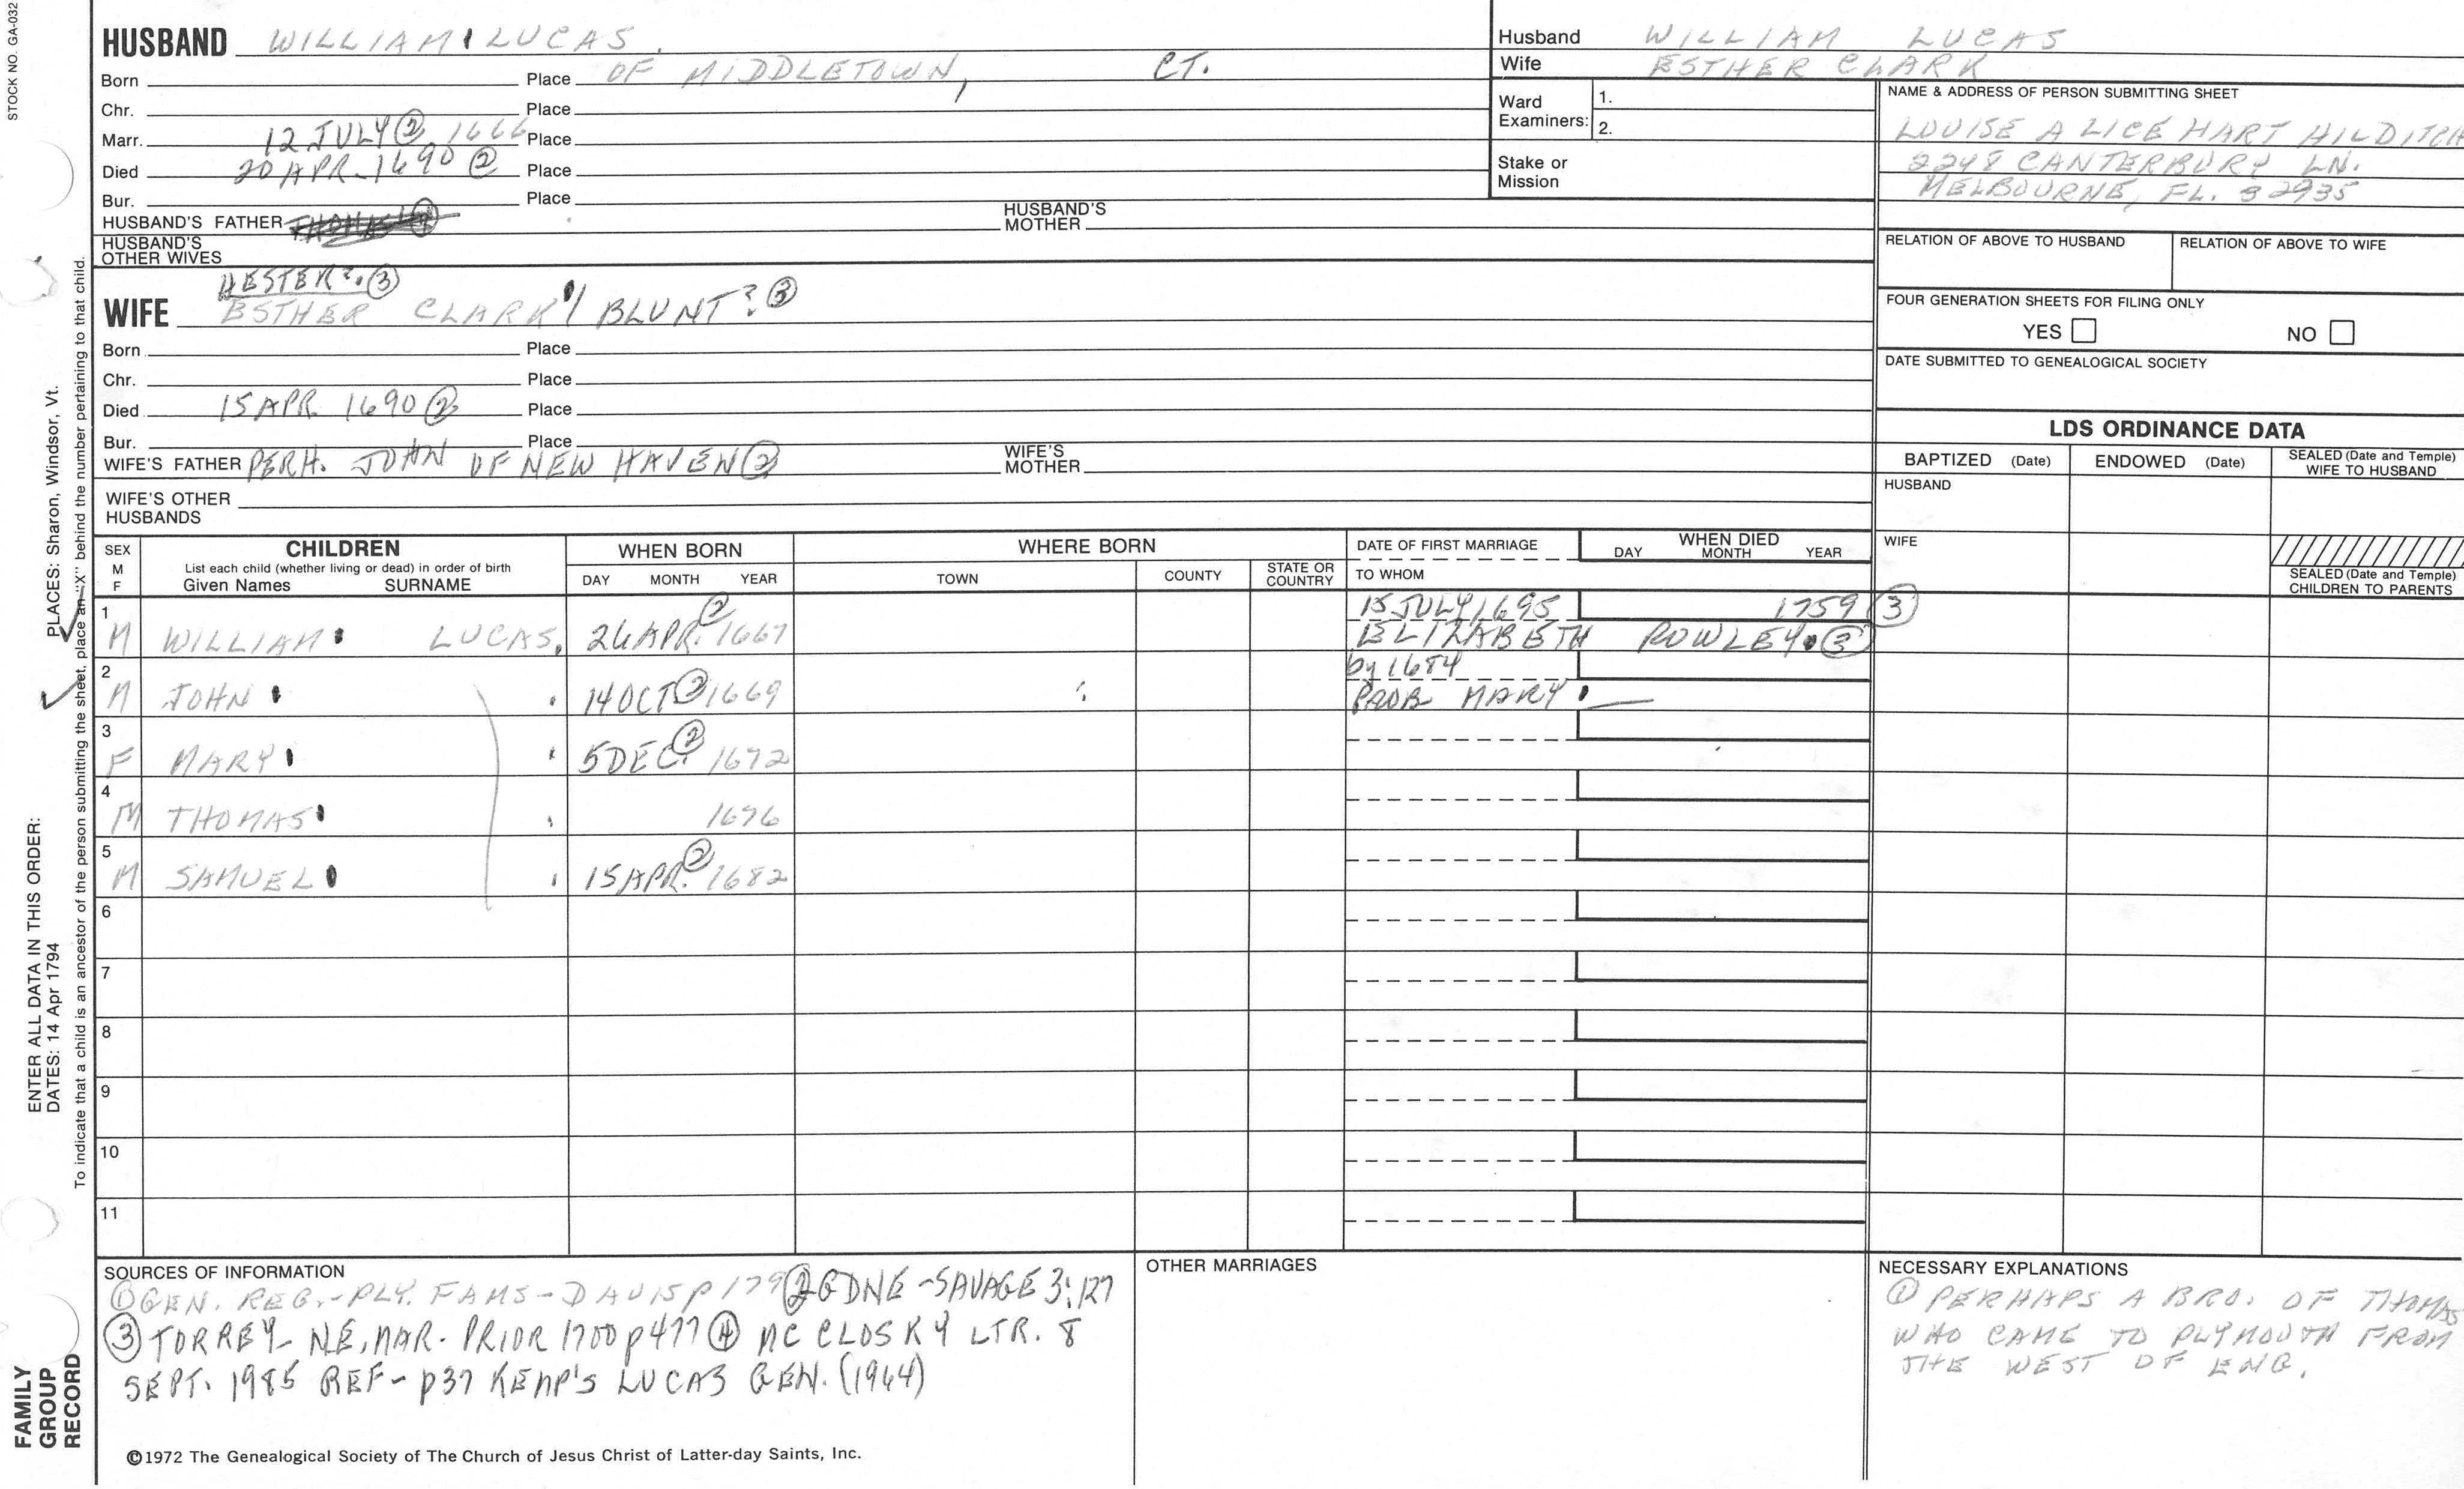 STOCK NO. GA-032
HUSBAND WILLIAM LUCAS
Born Place OF MIDDLETOWN, CT.
Chr. Place
Marr. 12 JULY ② 1666 Place
Died 20 APR. 1690 ② Place
Bur. Place
HUSBAND'S FATHER THOMAS HUSBAND'S MOTHER
HUSBAND'S OTHER WIVES
HESTER? ③
WIFE ESTHER CLARK / BLUNT? ③
Born Place
Chr. Place
Died 15 APR 1690 ② Place
Bur. Place
WIFE'S FATHER PERH. JOHN OF NEW HAVEN ② WIFE'S MOTHER
WIFE'S OTHER HUSBANDS
Husband WILLIAM LUCAS
Wife ESTHER CLARK
Ward Examiners: 1.
2.
Stake or Mission
NAME & ADDRESS OF PERSON SUBMITTING SHEET
LOUISE ALICE HART HILDITCH
2248 CANTERBURY LN.
MELBOURNE, FL. 32935
RELATION OF ABOVE TO HUSBAND RELATION OF ABOVE TO WIFE
FOUR GENERATION SHEETS FOR FILING ONLY
YES NO
DATE SUBMITTED TO GENEALOGICAL SOCIETY
LDS ORDINANCE DATA
BAPTIZED (Date) ENDOWED (Date) SEALED (Date and Temple) WIFE TO HUSBAND
HUSBAND
WIFE
SEALED (Date and Temple) CHILDREN TO PARENTS
SEX M F
CHILDREN
List each child (whether living or dead) in order of birth
Given Names SURNAME
WHEN BORN
DAY MONTH YEAR
WHERE BORN
TOWN COUNTY STATE OR COUNTRY
DATE OF FIRST MARRIAGE
TO WHOM
WHEN DIED
DAY MONTH YEAR
1 15 JULY 1695 1759 ③
M WILLIAM LUCAS, 26 APR. ② 1667 ELIZABETH ROWLEY ③
2 by 1684
M JOHN 14 OCT ② 1669 PROB MARY —
3
F MARY 5 DEC. ② 1672
4
M THOMAS 1676
5
M SAMUEL 15 APR. ② 1682
6
7
8
9
10
11
SOURCES OF INFORMATION
① GEN. REG. - PLY. FAMS - DAVIS p 179 ② GDNE - SAVAGE 3:127
③ TORREY - N.E. MAR. PRIOR 1700 p477 ④ MC CLOSKY LTR. 8
SEPT. 1985 REF - p37 KEMP'S LUCAS GEN. (1964)
OTHER MARRIAGES
NECESSARY EXPLANATIONS
① PERHAPS A BRO. OF THOMAS
WHO CAME TO PLYMOUTH FROM
THE WEST OF ENG.
©1972 The Genealogical Society of The Church of Jesus Christ of Latter-day Saints, Inc.
FAMILY GROUP RECORD
ENTER ALL DATA IN THIS ORDER:
DATES: 14 Apr 1794 PLACES: Sharon, Windsor, Vt.
To indicate that a child is an ancestor of the person submitting the sheet, place an "X" behind the number pertaining to that child.